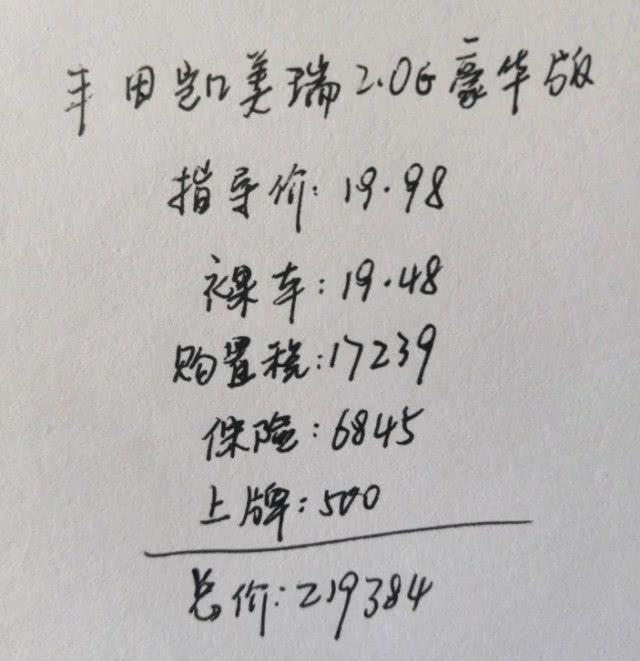 丰田凯美瑞2.0G豪华版
指导价:19.98
裸车:19.48
购置税:17239
保险:6845
上牌:500
总价:219384